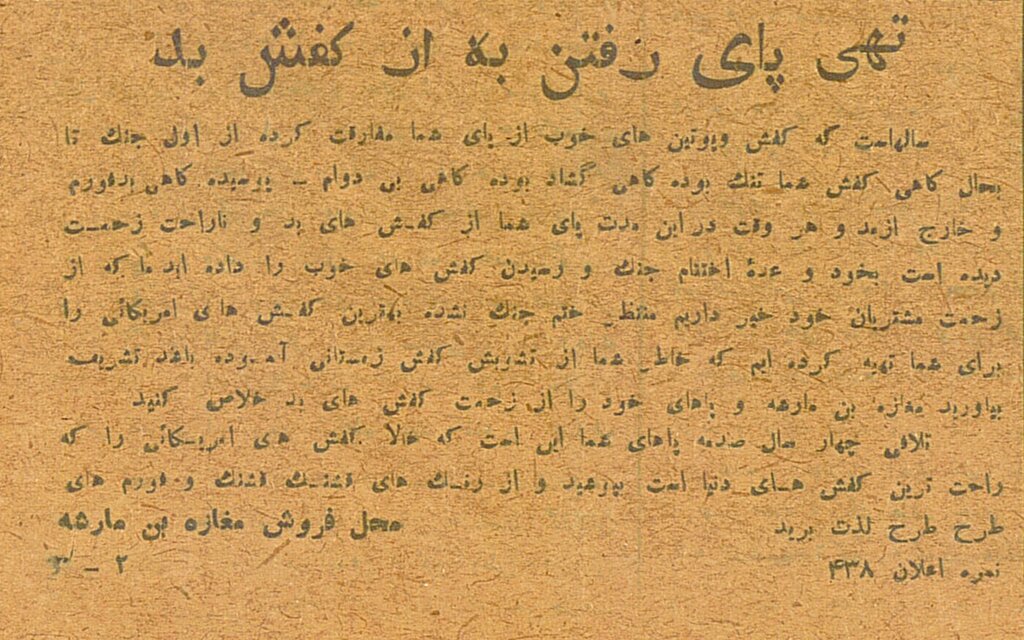 تهی پای رفتن به از کفش بد
سالهاست که کفش وپوتین های خوب از پای شما مفارقت کرده از اول جنك تا
بحال کاهی کفش شما تنك بوده کاهی گشاد بوده کاهی بی دوام ــ پوسیده کاهی بدفورم
و خارج ازمد و هر وقت در این مدت پای شما از کفش های بد و ناراحت زحمت
دیده است بخود وعدۀ اختتام جنك و رسیدن کفش های خوب را داده اید ما که از
زحمت مشتریان خود خبر داریم منتظر ختم جنك نشده بهترین کفش های امریکائی را
برای شما تهیه کرده ایم که خاطر شما از تشویش کفش زمستانی آسوده باشد تشریف
بیاورید مغازه بن مارشه و پاهای خود را از زحمت کفش های بد خلاص کنید
تلافی چهار سال صدمه پاهای شما این است که حالا کفش های امریکائی را که
راحت ترین کفش های دنیا است بپوشید و از رنك های قشنك قشنك و فورم های
طرح طرح لذت برید
محل فروش مغازه بن مارشه
نمره اعلان ۴۳۸
۲ ــ ۳